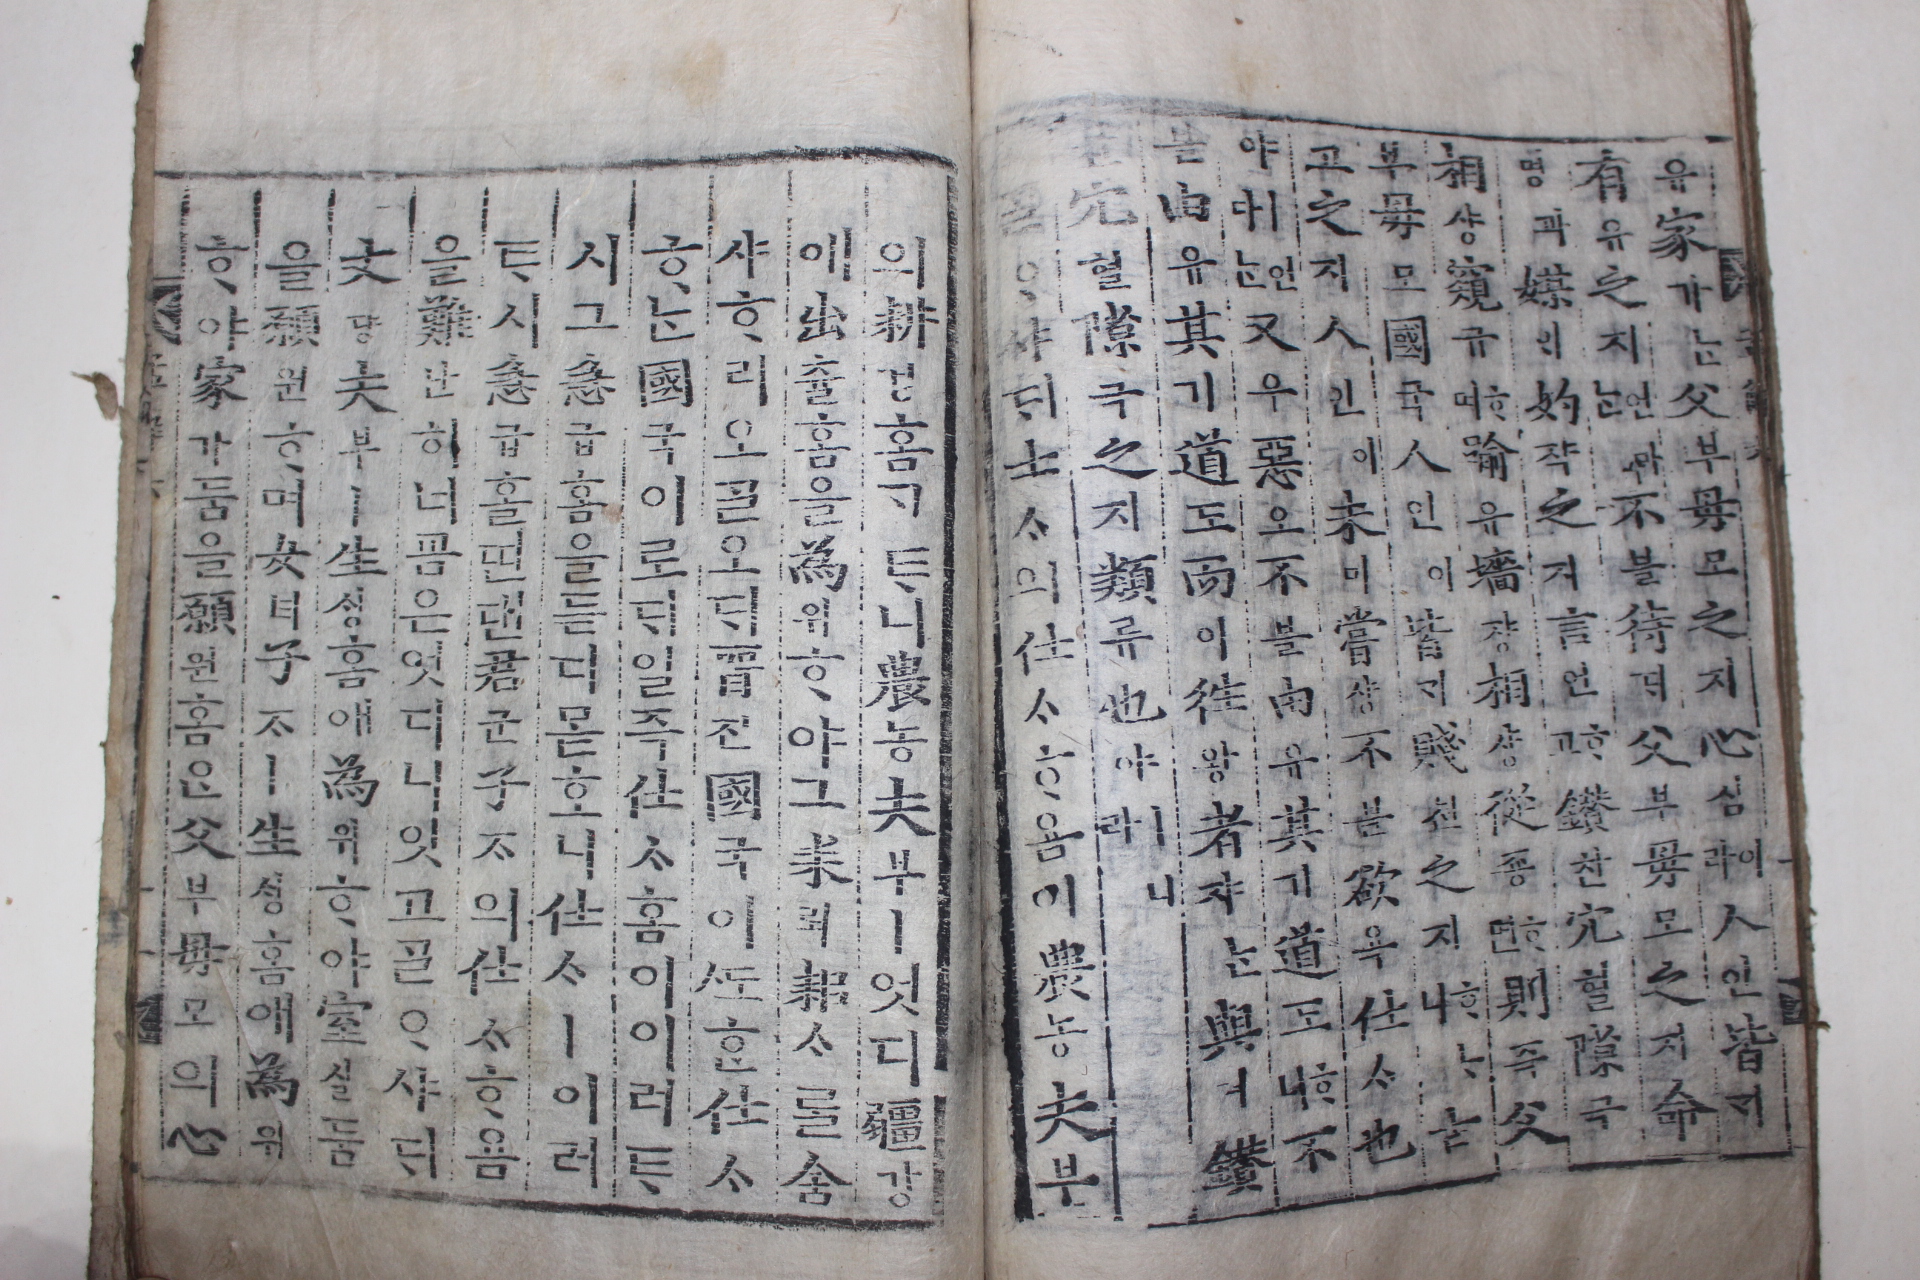 유家가ᄂᆞᆫ父부母모之지心심이라人인皆ᄀᆡ
有유之지언마ᄂᆞᆫ不블待ᄃᆡ父부母모之지命
명과媒ᄆᆡ妁쟉之지言언ᄒᆞ고鑽찬穴혈隙극
相샹窺규ᄒᆞ며踰유墻쟝相샹從죵ᄒᆞ면則즉父
부母모國국人인이皆ᄀᆡ賤쳔之지ᄒᆞᄂᆞ니古
고之지人인이未미嘗샹不블欲욕仕ᄉᆞ也
야ㅣ언마ᄂᆞᆫ又우惡오不블由유其기道도ᄒᆞ니不
블由유其기道도而이往왕者쟈ᄂᆞᆫ與여鑽
찬穴혈隙극之지類류也야ㅣ니라
ᄀᆞᆯᄋᆞ샤ᄃᆡ士ᄉᆞ의仕ᄉᆞᄒᆞ욤이農농夫부
의耕경홈ᄀᆞᄐᆞ니農농夫부ㅣ엇디疆강
애出츌홈을爲위ᄒᆞ야그耒뢰耜ᄉᆞ를舍
샤ᄒᆞ리오ᄀᆞᆯ오ᄃᆡ晋진國국이ᄯᅩᄒᆞᆫ仕ᄉᆞ
ᄒᆞᄂᆞᆫ國국이로ᄃᆡ일즉仕ᄉᆞ홈이이러ᄐᆞ
시그急급홈을듣디몯호니仕ᄉᆞㅣ이러
ᄐᆞ시急급홀딘댄君군子ᄌᆞ의仕ᄉᆞᄒᆞ욤
을難난히너김은엇디니잇고ᄀᆞᆯᄋᆞ샤ᄃᆡ
丈댱夫부ㅣ生ᄉᆡᆼ홈애爲위ᄒᆞ야室실둠
을願원ᄒᆞ며女녀子ᄌᆞㅣ生ᄉᆡᆼ홈애爲위
ᄒᆞ야家가둠을願원홈은父부母모의心